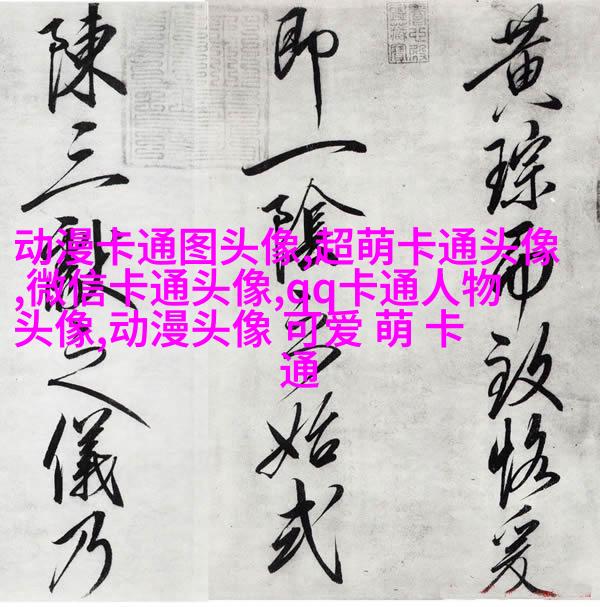 黄琮而致恪爰
即一陰之始式
陳三獻之儀乃
动漫卡通图头像,超萌卡通头像
,微信卡通头像,qq卡通人物
头像,动漫头像 可爱 萌 卡
通